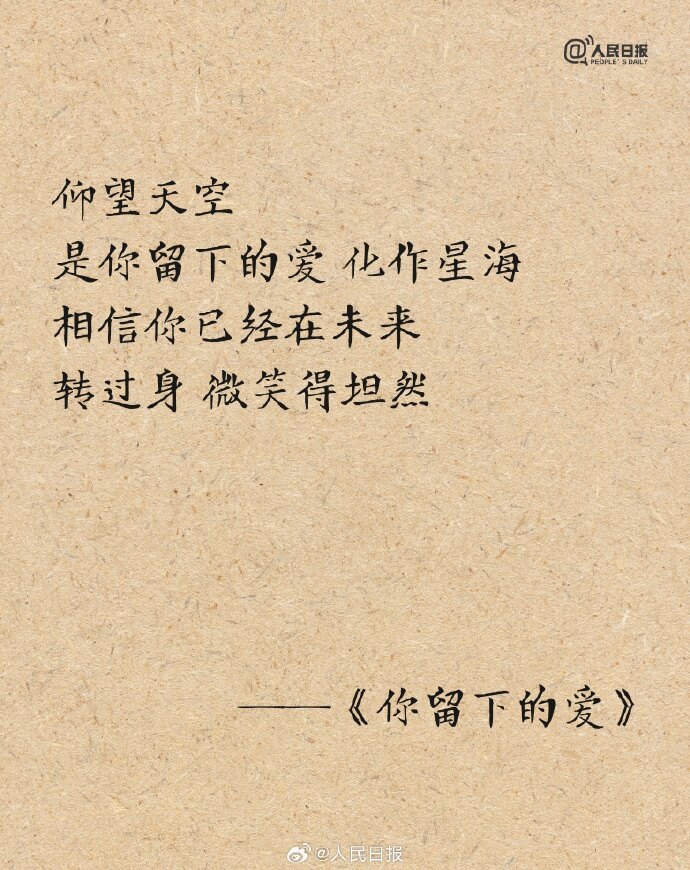 @人民日报
PEOPLE'S DAILY
仰望天空
是你留下的爱 化作星海
相信你已经在未来
转过身 微笑得坦然
——《你留下的爱》
@人民日报